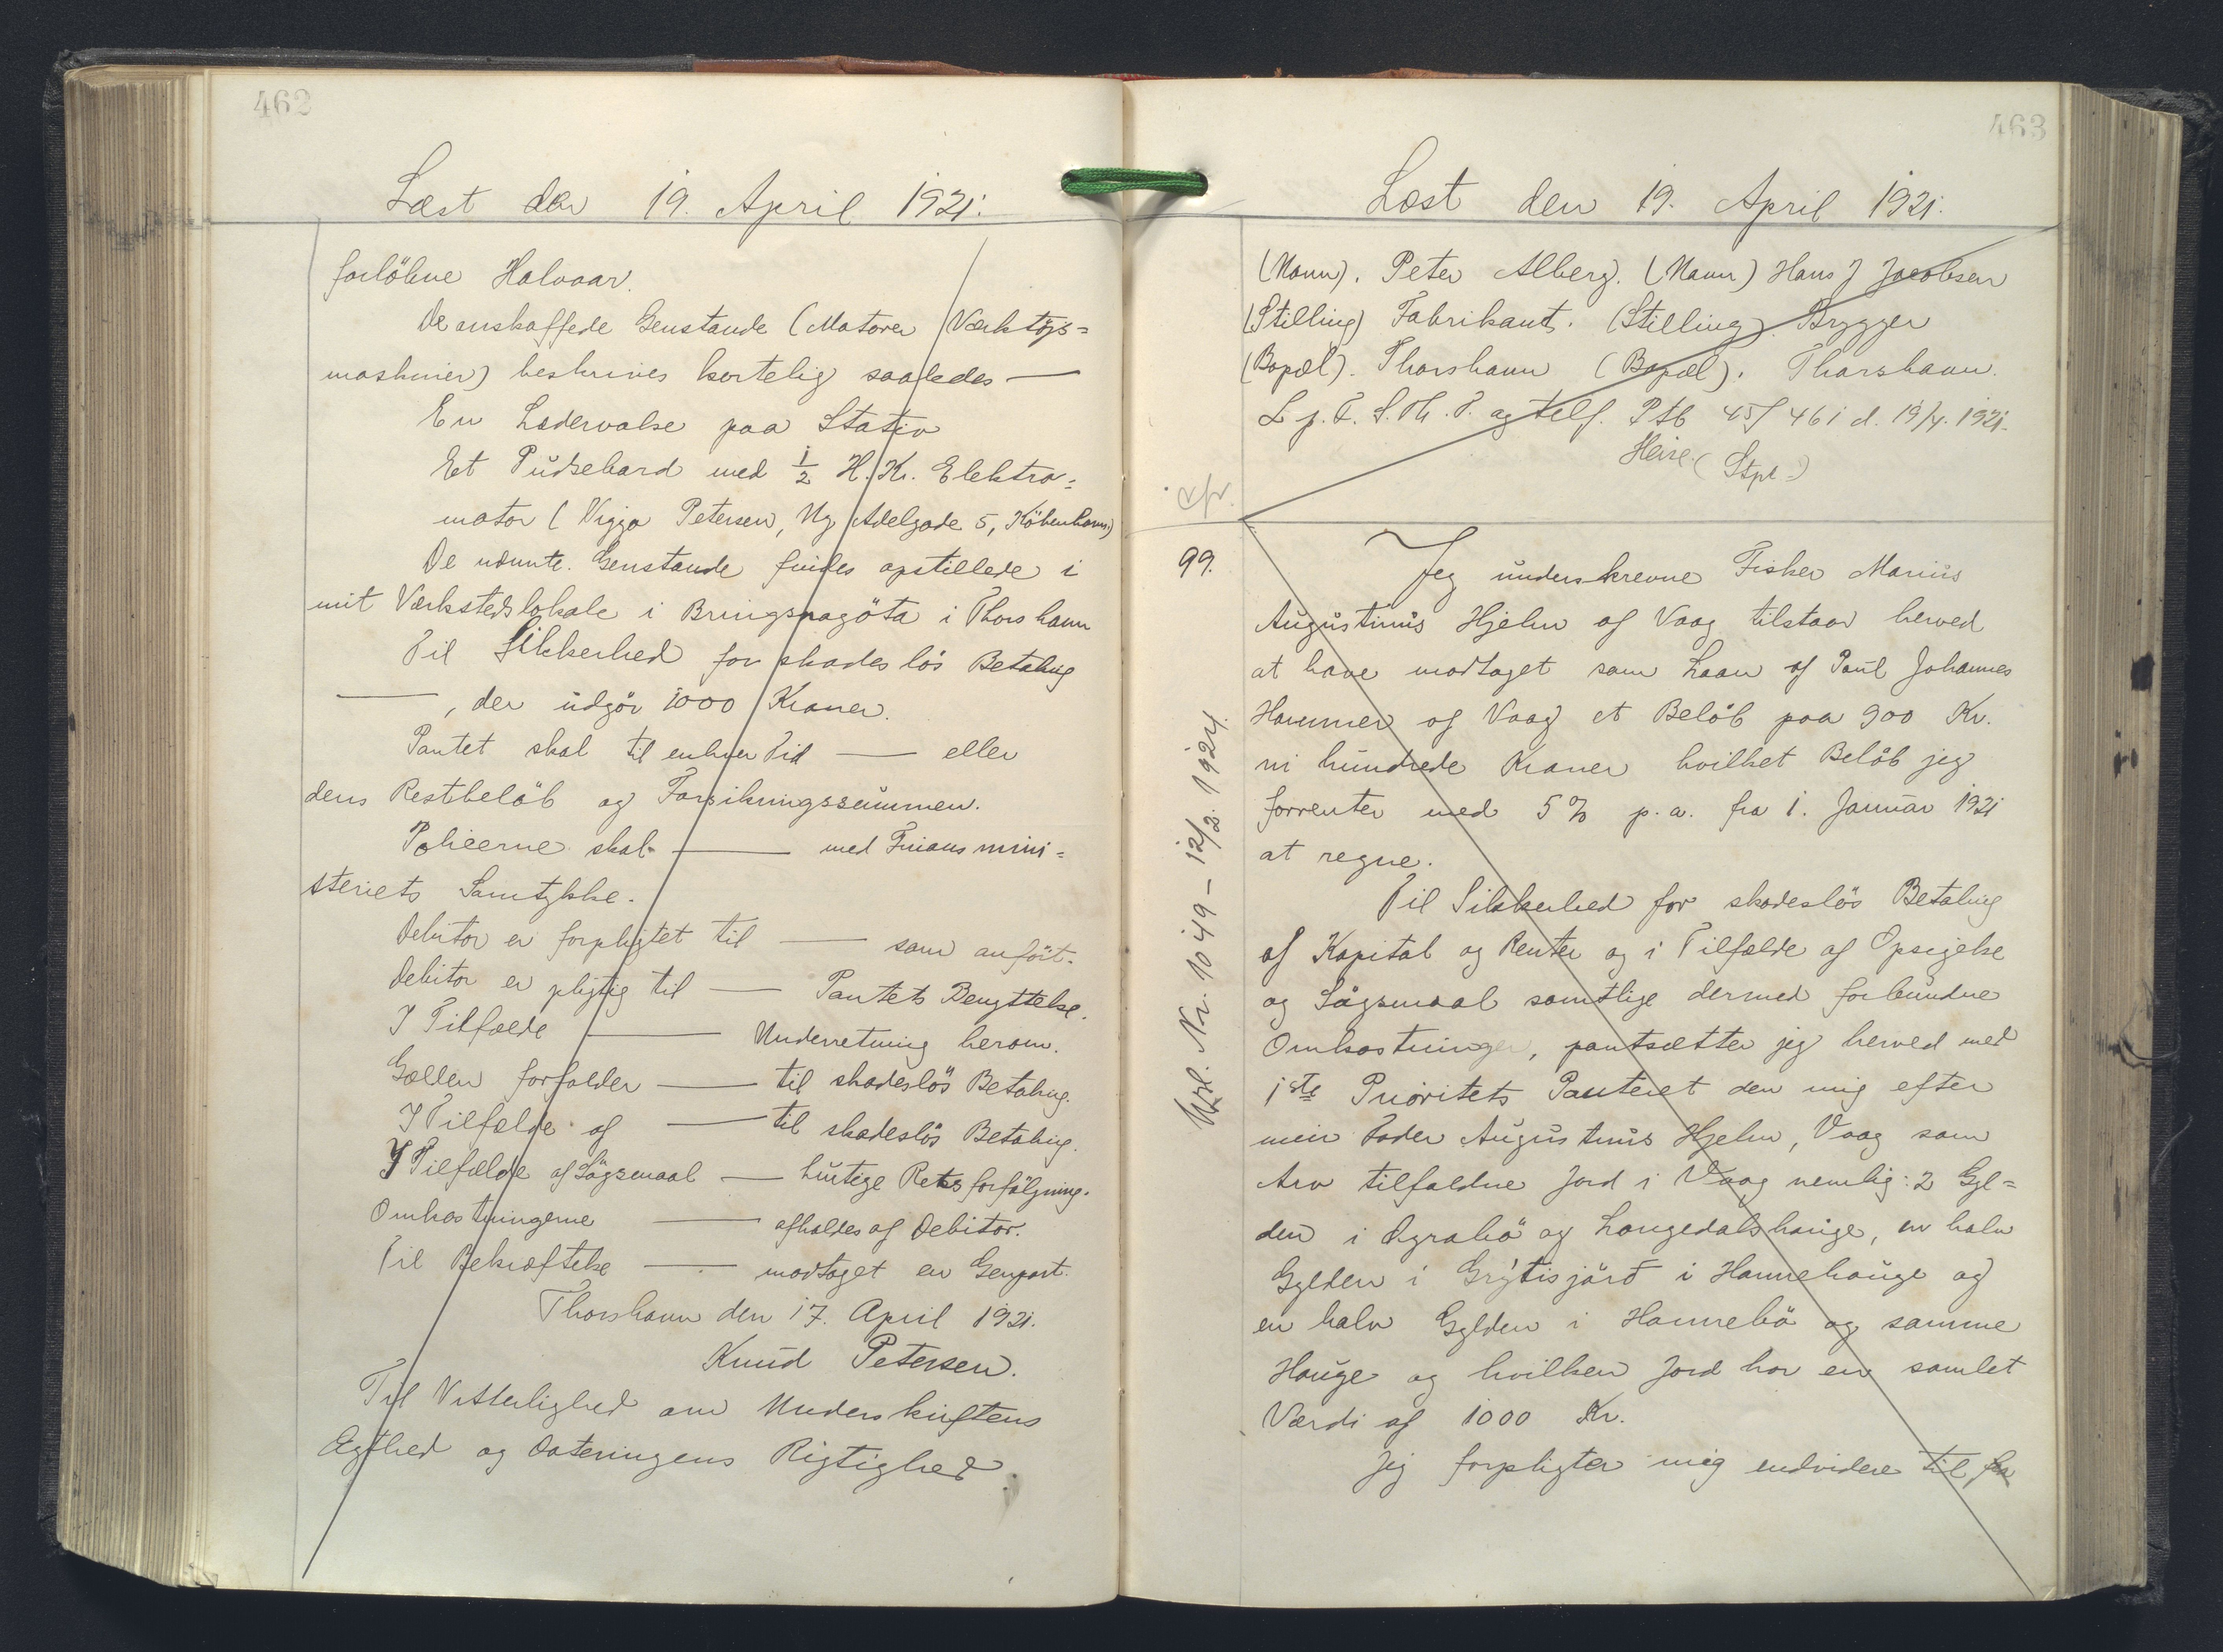 462
Læst den 19. April 1921.
forløbne Halvaar.
De anskaffede Genstande (Motorer Værktøjs=
maskiner) beskrives kortelig saaledes —
En Lædervalse paa Stativ
Et Pudsebord med 1/2 H. Kr. Elektro=
motor (Viggo Petersen, Ny Adelgade 5, København)
De nævnte Genstande findes opstillede i
mit Værkstedslokale i Bringsnagøta i Thorshavn
Til Sikkerhed for skadesløs Betaling
—, der udgør 1000 Kroner.
Pantet skal til enhver Tid — eller
dens Restbeløb og Forsikringssummen.
Policerne skal — med Finansmini=
steriets Samtykke.
Debitor er forpligtet til — som anført.
Debitor er pligtig til — Pantets Benyttelse.
I Tilfælde — Underretning herom.
Gælden forfalder — til skadesløs Betaling.
I Tilfælde af — til skadesløs Betaling.
I Tilfælde af Søgsmaal — hurtige Retsforfølgning.
Omkostningerne — afholdes af Debitor.
Til Bekræftelse — modtaget en Genpart.
Thorshavn den 17. April 1921.
Knud Petersen.
Til Vitterlighed om Underskriftens
Ægthed og Dateringens Rigtighed.
463
Læst den 19. April 1921.
(Navn). Peter Alberg. (Navn) Hans J Jacobsen
(Stilling) Fabrikant. (Stilling). Brygger
(Bopæl). Thorshavn (Bopæl). Thorshavn.
L. p. F. S. Th. P. og telf. Ptb 45/461 d. 19/4. 1921.
Heise. (Stpl.)
cfr.
99.
Jeg underskrevne Fisker Marius
Augustinus Hjelm af Vaag tilstaar herved
at have modtaget som Laan af Poul Johannes
Hammer af Vaag et Beløb paa 900 Kr.
ni hundrede Kroner hvilket Beløb jeg
forrenter med 5 % p.a. fra 1. Januar 1921
at regne.
Til Sikkerhed for skadesløs Betaling
af Kapital og Renter og i Tilfælde af Opsigelse
og Søgsmaal samtlige dermed forbundne
Omkostninger, pantsætter jeg herved med
1ste Prioritets Panteret den mig efter
min Fader Augustinus Hjelm, Vaag som
Arv tilfaldne Jord i Vaag nemlig: 2 Gyl=
den i Ryrabø og Langedalshauge, en halv
Gylden i Grytisjørð i Hannehauge og
en halv Gylden i Hannebø og samme
Hauge og hvilken Jord har en samlet
Værdi af 1000 Kr.
Jeg forpligter mig endvidere til for
Uzl. Nr. 1049 – 12/2. 1924.